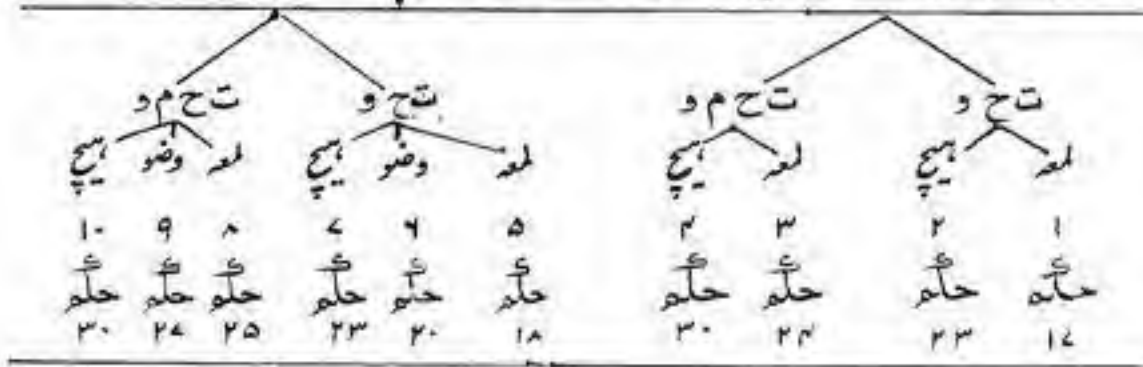 ت ح و ت ح م و ت ح و ت ح م و
لمعه هیچ لمعه هیچ لمعه وضو هیچ لمعه وضو هیچ
۱ ۲ ۳ ۴ ۵ ۶ ۷ ۸ ۹ ۱۰
حکم حکم حکم حکم حکم حکم حکم حکم حکم حکم
۱۷ ۲۳ ۲۴ ۳۰ ۱۸ ۲۰ ۲۳ ۲۵ ۲۷ ۳۰